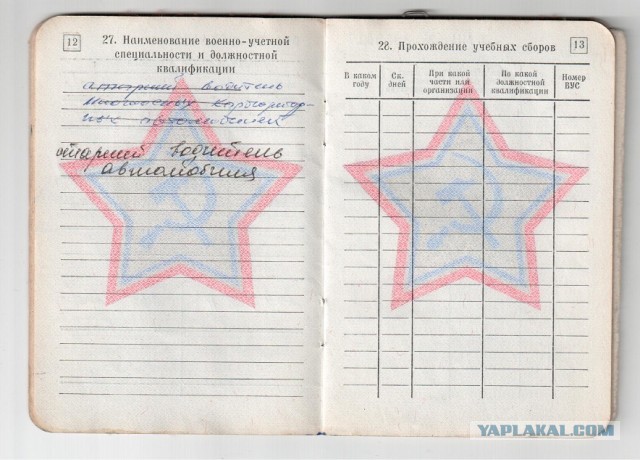 12
27. Наименование военно-учетной
специальности и должностной
квалификации
старший водитель
автомобилей
старший водитель
автомобиля
28. Прохождение учебных сборов
13
В каком году
Ск. дней
При какой части или организации
По какой должностной квалификации
Номер ВУС
YAPLAKAL.COM